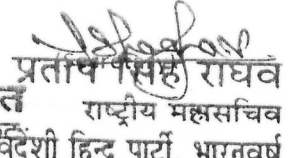 प्रताप सिंह राघव
त राष्ट्रीय महासचिव
र्वदेशी हिन्द पार्टी भारतवर्ष